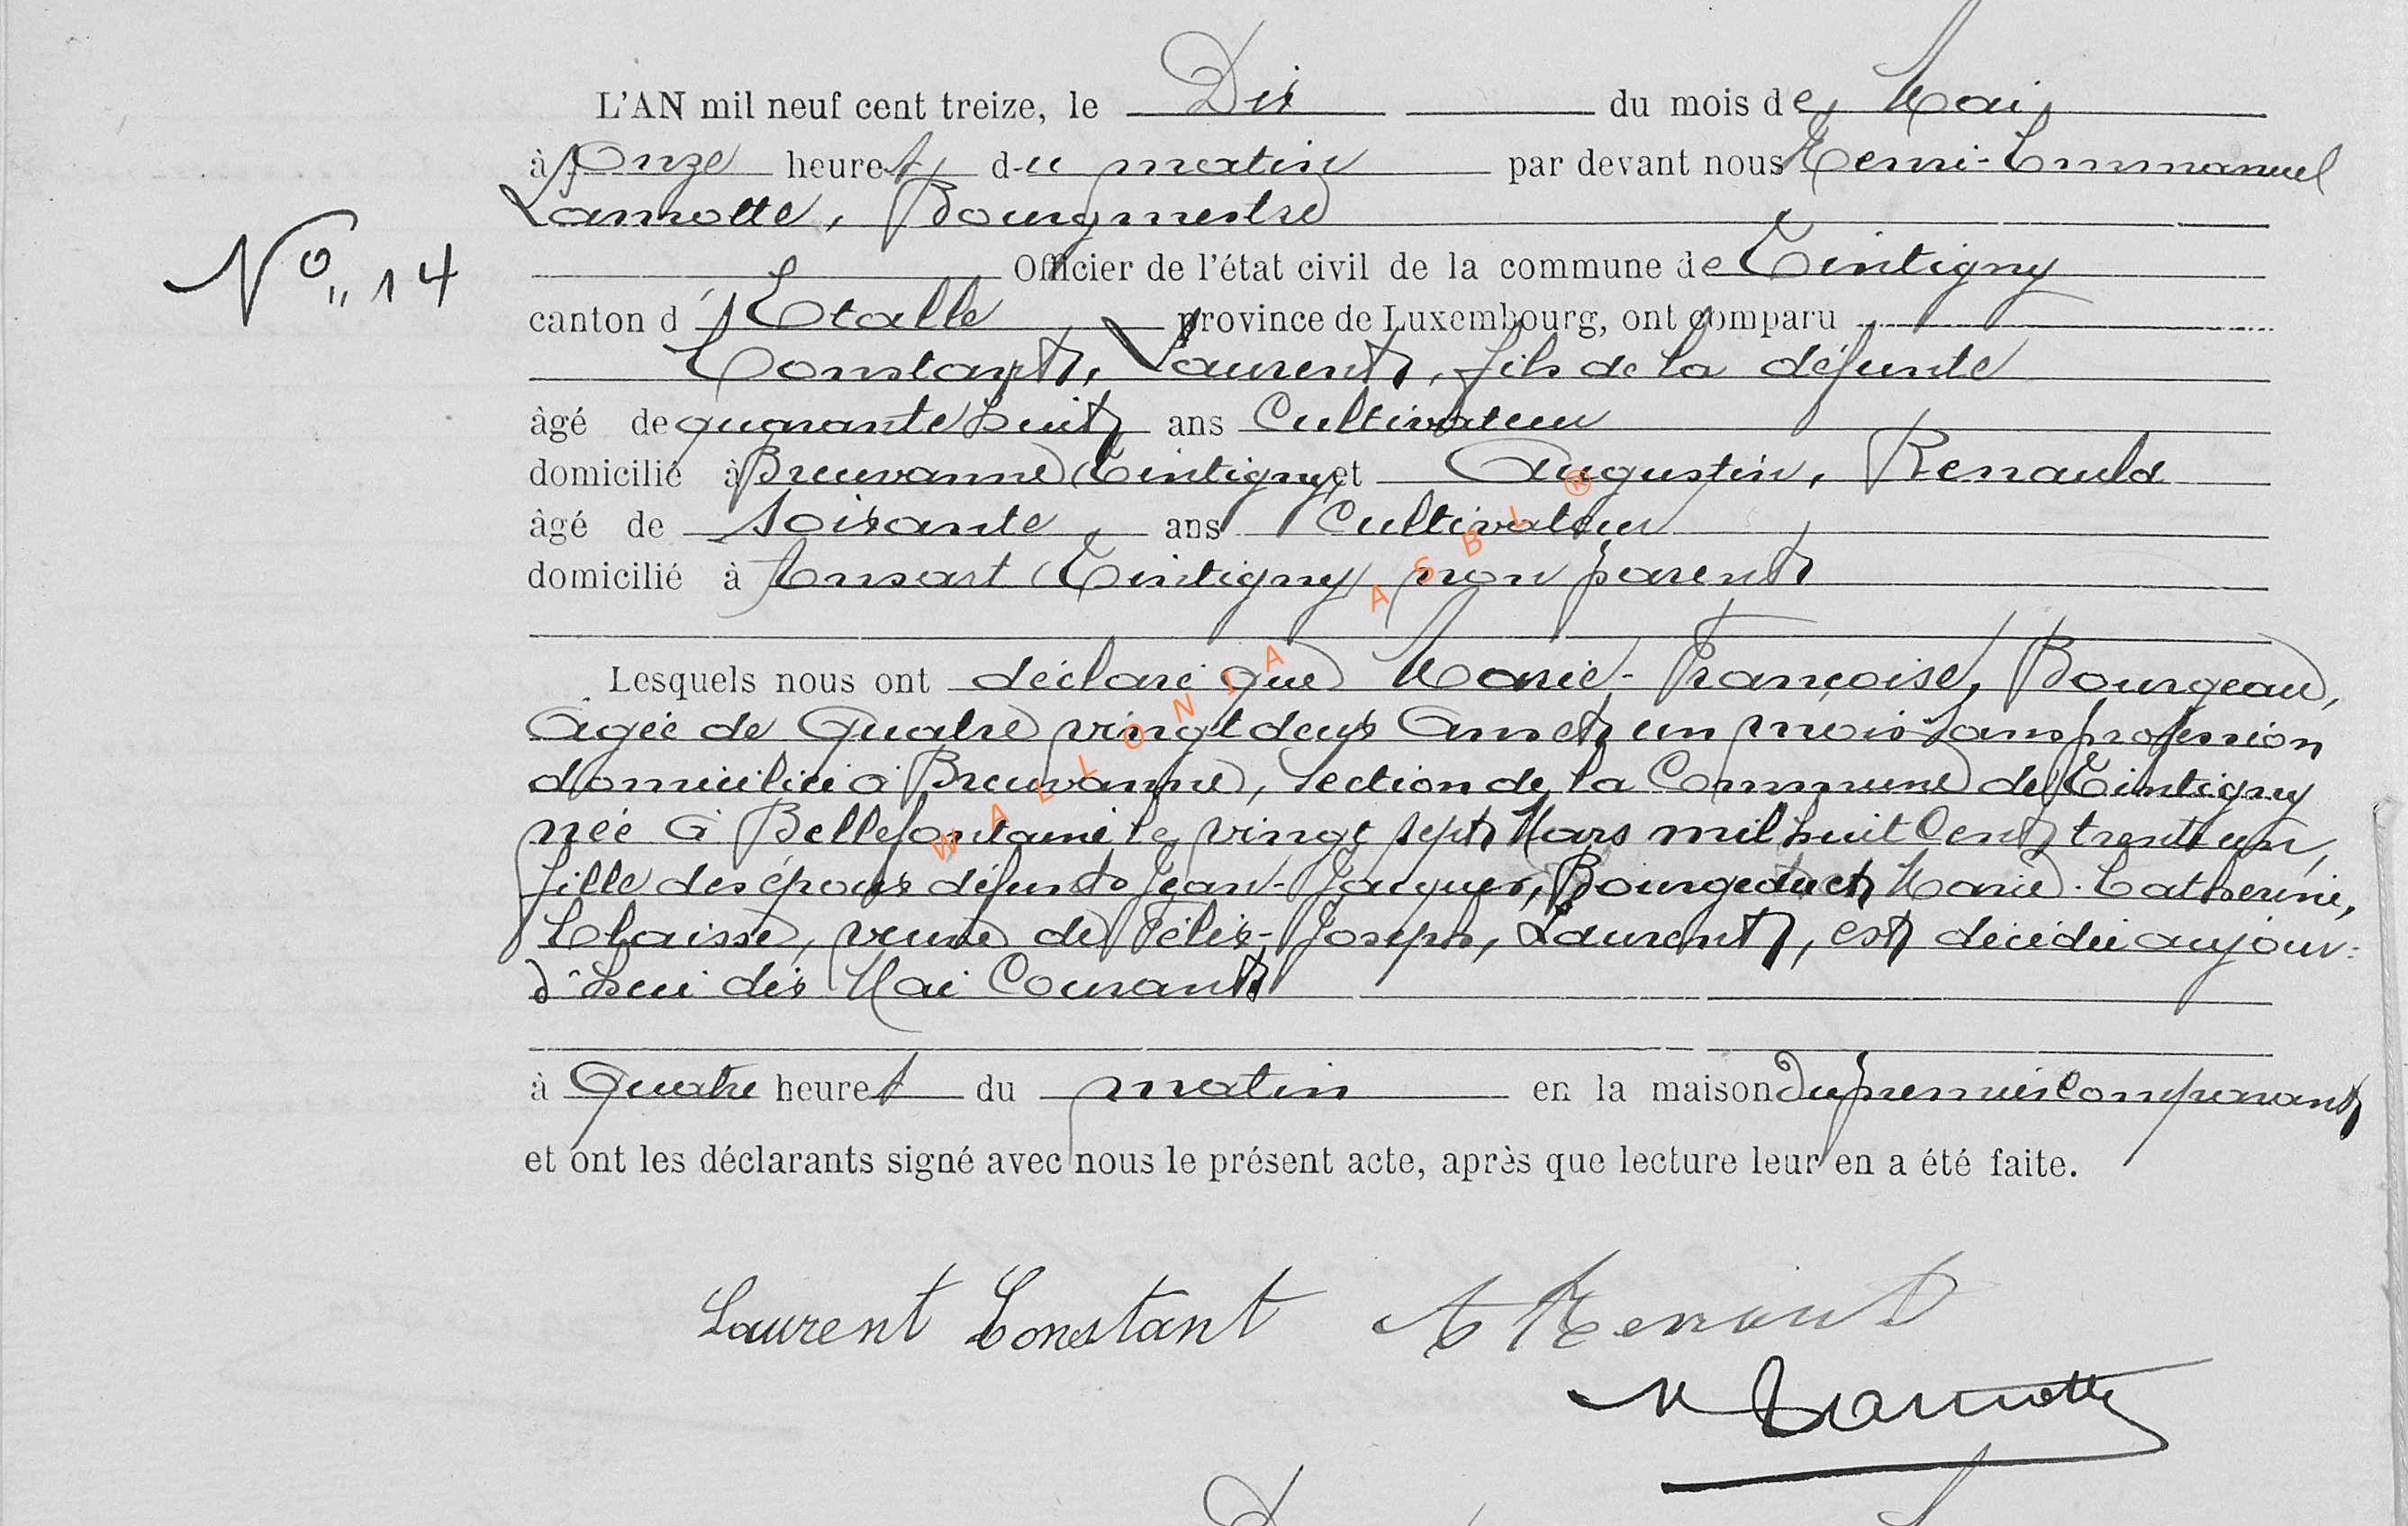 L'AN mil neuf cent treize, le Dix du mois de Mai,
à Onze heures du matin par devant nous Henri-Emmanuel
Lamotte, Bourgmestre
Officier de l'état civil de la commune de Tintigny
N° 14
canton d'Etalle province de Luxembourg, ont comparu
Constant, Laurent, fils de la défunte
âgé de quarante huit ans Cultivateur
domicilié à Breuvanne (Tintigny) et Augustin, Renauld
âgé de soixante ans Cultivateur
domicilié à Ansart (Tintigny) non parent
Lesquels nous ont déclaré que Marie-Françoise, Bourgeau,
âgée de Quatre vingt deux ans et un mois sans profession
domiciliée à Breuvanne, section de la Commune de Tintigny
née à Bellefontaine le vingt sept Mars mil huit Cent trente un,
fille des époux défunts Jean-Jacques, Bourgeau et Marie-Catherine,
Claisse, veuve de Félix-Joseph, Laurent, est décédée aujour-
d'hui dix Mai Courant
à Quatre heures du matin en la maison du premier Comparant
et ont les déclarants signé avec nous le présent acte, après que lecture leur en a été faite.
Laurent Constant A Renaut
H Lamotte
WALLONIA ASBL ®